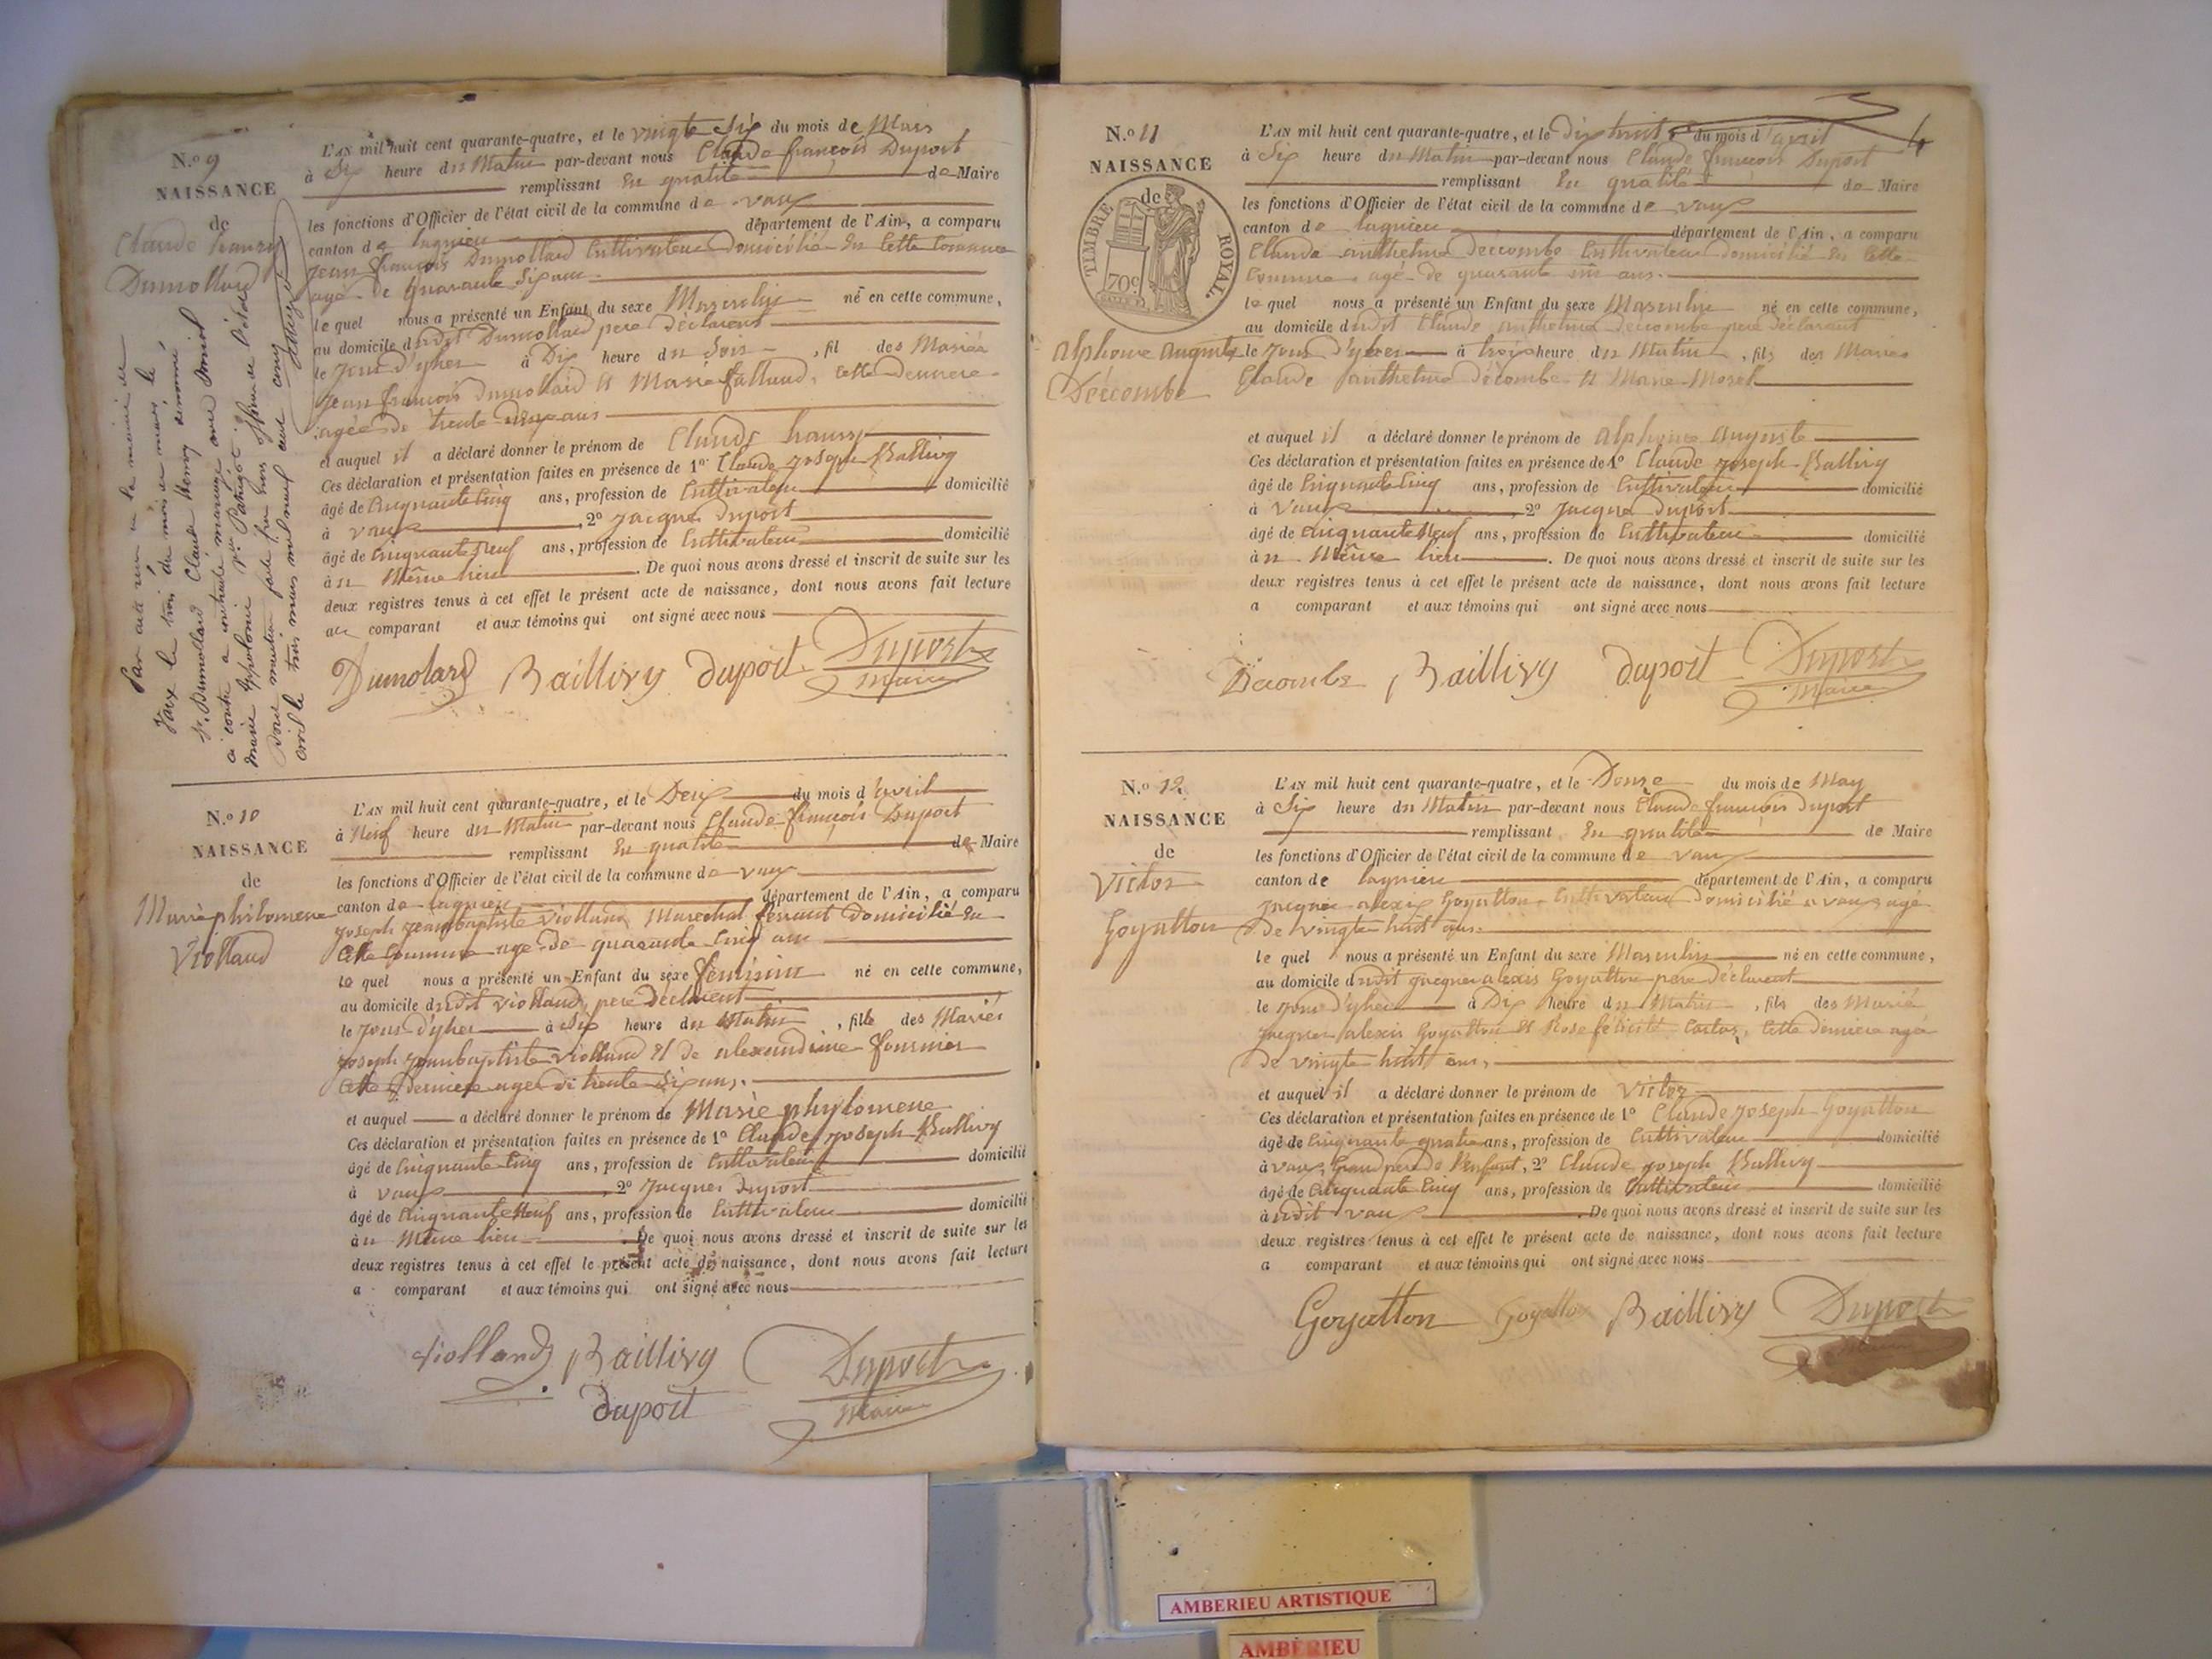 N.º 9
NAISSANCE
de
Claude haury
Dumollard
L'AN mil huit cent quarante-quatre, et le vingte Six du mois de Mars
à Six heure du Matin par-devant nous Claude françois Duport
remplissant En qualité de Maire
les fonctions d'Officier de l'état civil de la commune de vaux
canton de lagnieu département de l'Ain, a comparu
Jean françois Dumollard Cultivateur domicilié En Cette Commune
agé de quarante Six ans
le quel nous a présenté un Enfant du sexe Masculin né en cette commune,
au domicile dudit Dumollard pere Déclarent
le jour d'yher à Dix heure du Soir, fil des Mariés
Jean françois Dumollard Et Marie fallaud, Cette Derniere
agée de trente ans
et auquel il a déclaré donner le prénom de Claude haury
Ces déclaration et présentation faites en présence de 1º Claude joseph Ballivy
âgé de Cinquante Cinq ans, profession de Cultivateur domicilié
à vaux, 2º Jacques Duport
âgé de Cinquante Neuf ans, profession de Cultivateur domicilié
à u Même lieu. De quoi nous avons dressé et inscrit de suite sur les
deux registres tenus à cet effet le présent acte de naissance, dont nous avons fait lecture
au comparant et aux témoins qui ont signé avec nous
Dumolard Baillivy duport Duport
Maire
Par acte reçu en la mairie de
Vaux le trois du mois de mars le
Sr. Dumollard Claude Henry dénommé
ci contre a contracté mariage avec
marie Appolonie
Dont mention faite par nous officier de l'état
civil le trois mars mil neuf cent cinq
N.º 10
NAISSANCE
de
Marie philomene
Violland
L'AN mil huit cent quarante-quatre, et le Deux du mois d'avril
à Neuf heure du Matin par-devant nous Claude françois Duport
remplissant En qualité de Maire
les fonctions d'Officier de l'état civil de la commune de vaux
canton de lagnieu département de l'Ain, a comparu
joseph jeanbaptiste violland Marechal ferrant Domicilié En
Cette Commune age de quarante Cinq ans
le quel nous a présenté un Enfant du sexe féminin né en cette commune,
au domicile dudit violland pere Déclarent
le jour d'yher à Six heure du Matin, fille des Mariés
joseph jeanbaptiste violland Et de alexandrine fournier
Cette Derniere agee de trente Six ans.
et auquel a déclaré donner le prénom de Marie phylomene
Ces déclaration et présentation faites en présence de 1º Claude joseph Ballivy
âgé de Cinquante Cinq ans, profession de Cultivateur domicilié
à vaux, 2º Jacques Duport
âgé de Cinquante Neuf ans, profession de Cultivateur domicilié
à u Même lieu. De quoi nous avons dressé et inscrit de suite sur les
deux registres tenus à cet effet le présent acte de naissance, dont nous avons fait lecture
a comparant et aux témoins qui ont signé avec nous
violland Baillivy Duport
duport Maire
4
N.º 11
NAISSANCE
de
TIMBRE ROYAL.
70c
Alphonse Auguste
Décombe
L'AN mil huit cent quarante-quatre, et le dix huit du mois d'avril
à Six heure du Matin par-devant nous Claude françois Duport
remplissant En qualité de Maire
les fonctions d'Officier de l'état civil de la commune de vaux
canton de lagnieu département de l'Ain, a comparu
Claude anthelme Décombe Cultivateur domicilié En Cette
Commune agé de quarante un ans.
le quel nous a présenté un Enfant du sexe Masculin né en cette commune,
au domicile dudit Claude anthelme decombe pere déclarant
le jour d'yher à trois heure du Matin, fils des Mariés
Claude anthelme décombe Et Marie Morel
et auquel il a déclaré donner le prénom de Alphonse Auguste
Ces déclaration et présentation faites en présence de 1º Claude joseph Ballivy
âgé de Cinquante Cinq ans, profession de Cultivateur domicilié
à Vaux, 2º Jacque Duport
âgé de Cinquante Neuf ans, profession de Cultivateur domicilié
à u Même lieu. De quoi nous avons dressé et inscrit de suite sur les
deux registres tenus à cet effet le présent acte de naissance, dont nous avons fait lecture
a comparant et aux témoins qui ont signé avec nous
Decombe Baillivy duport Duport
Maire
N.º 12
NAISSANCE
de
Victor
Goyatton
L'AN mil huit cent quarante-quatre, et le Douze du mois de May
à Six heure du Matin par-devant nous Claude françois duport
remplissant En qualité de Maire
les fonctions d'Officier de l'état civil de la commune de vaux
canton de lagnieu département de l'Ain, a comparu
jacques alexis Goyatton Cultivateur Domicilié a vaux agé
De vingte huit ans.
le quel nous a présenté un Enfant du sexe Masculin né en cette commune,
au domicile dudit jacques alexis Goyatton pere déclarent
le jour d'yher à Dix heure du Matin, fils des Mariés
jacques alexis Goyatton Et Rose félicité, Cette derniere agée
De vingte huit ans,
et auquel il a déclaré donner le prénom de Victor
Ces déclaration et présentation faites en présence de 1º Claude joseph Goyatton
âgé de Cinquante quatre ans, profession de Cultivateur domicilié
à vaux, Grand pere de l'Enfant, 2º Claude joseph Ballivy
âgé de Cinquante Cinq ans, profession de Cultivateur domicilié
à udit vaux. De quoi nous avons dressé et inscrit de suite sur les
deux registres tenus à cet effet le présent acte de naissance, dont nous avons fait lecture
a comparant et aux témoins qui ont signé avec nous
Goyatton Goyatton Baillivy Duport
AMBERIEU ARTISTIQUE
AMBÉRIEU